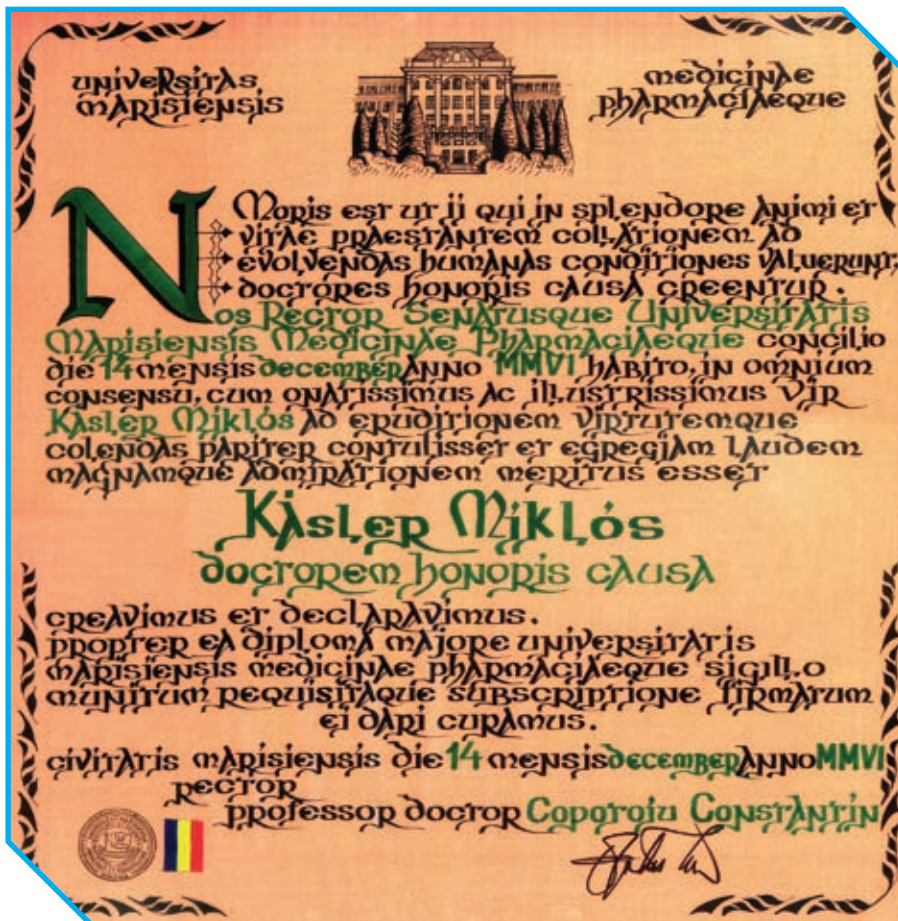 universitas
marisiensis
medicinae
pharmaciaeque
Moris est ut ii qui in splendore animi et
vitae praestantem collationem ad
evolvendas humanas conditiones valuerunt,
doctores honoris causa creentur.
Nos Rector Senatusque Universitatis
Marisiensis Medicinae Pharmaciaeque concilio
die 14 mensis december anno MMVI habito, in omnium
consensu, cum onatissimus ac illustrissimus vir
Kásler Miklós ad eruditionem virtutemque
colendas pariter contulisset et egregiam laudem
magnamque admirationem meritus esset
Kásler Miklós
doctorem honoris causa
creavimus et declaravimus.
propter ea diploma majore universitatis
marisiensis medicinae pharmaciaeque sigillo
munitum requisitaque subscriptione firmatum
ei dari curamus.
civitatis marisiensis die 14 mensis december anno MMVI
rector
professor doctor Copotoiu Constantin